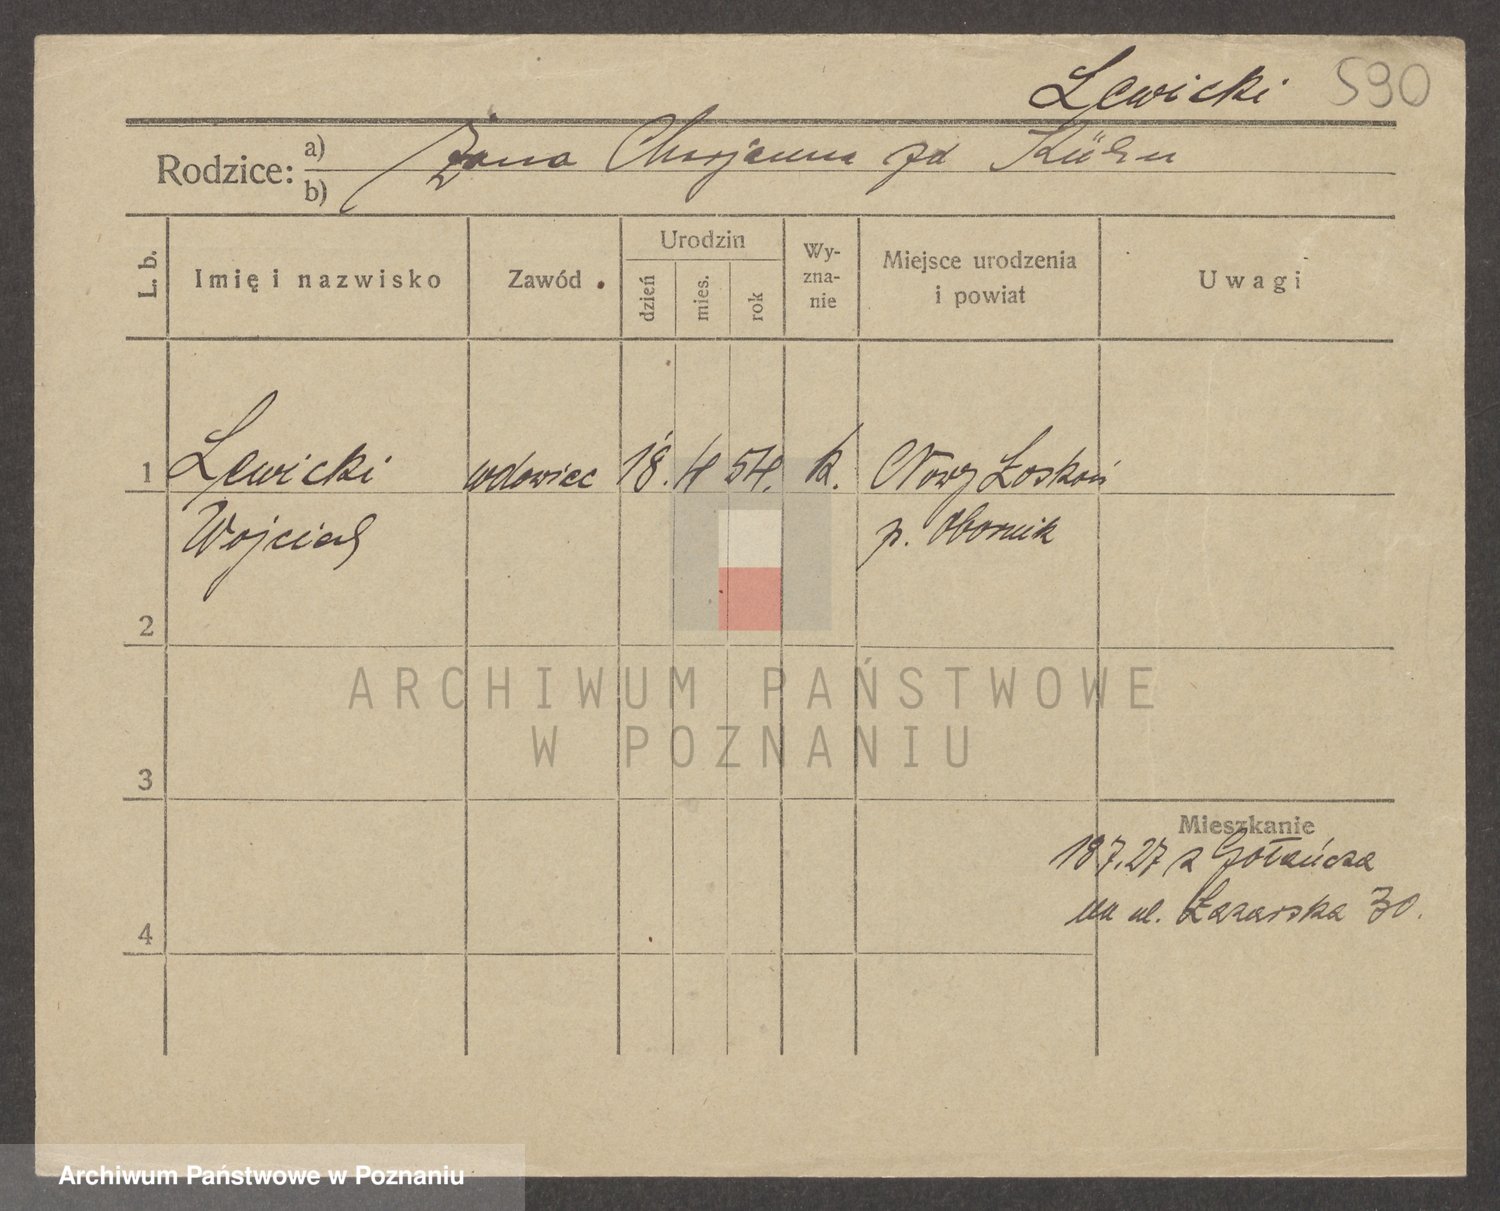 Lewicki 590
Rodzice: a) b)
Żona zd Kühn
L. b.
Imię i nazwisko
Zawód
Urodzin
dzień
mies.
rok
Wy-
zna-
nie
Miejsce urodzenia
i powiat
Uwagi
1 Lewicki wdowiec 18. 4 54. k. Nowy Łoskoń
Wojciech p. Obornik
2
3
4
Mieszkanie
18 7. 27 z Gołańcza
na ul. Łazarska 30.
ARCHIWUM PAŃSTWOWE
W POZNANIU
Archiwum Państwowe w Poznaniu